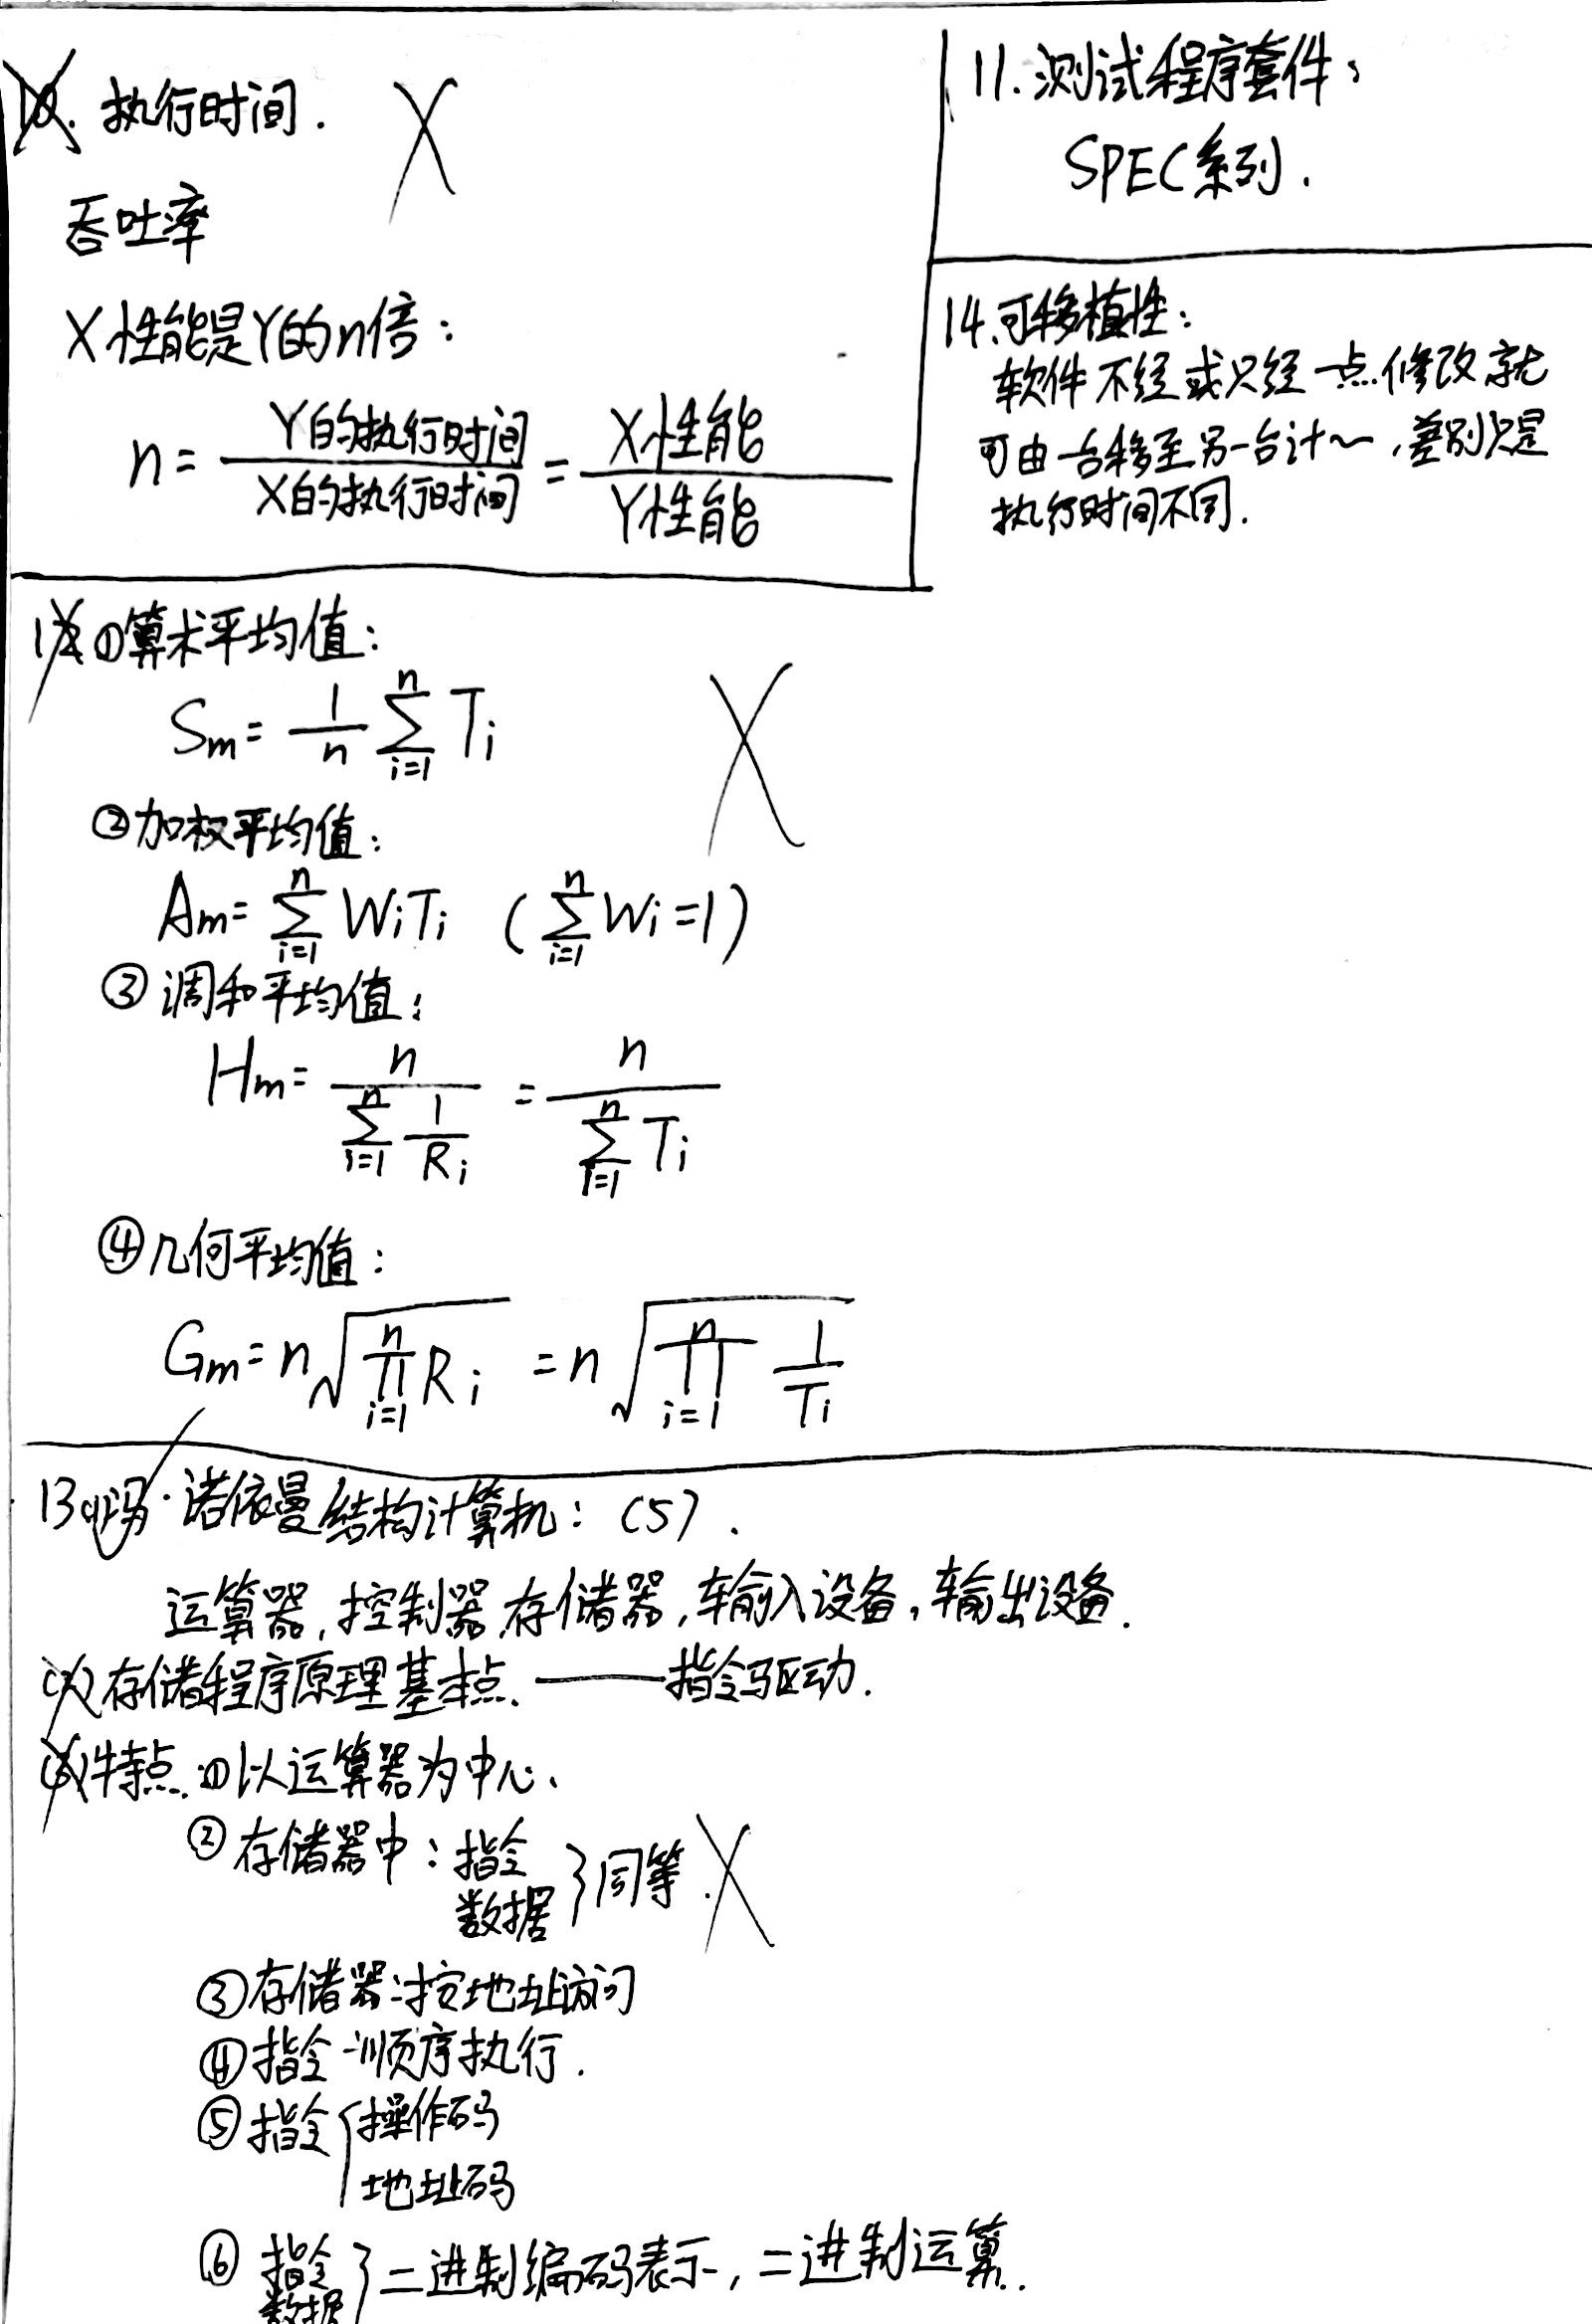 10. 执行时间.
吞吐率
X性能是Y的n倍:
n = Y的执行时间 / X的执行时间 = X性能 / Y性能
11. 测试程序套件:
SPEC系列.
14. 可移植性:
软件不经或只经一点修改就
可由一台移至另一台计~,差别只是
执行时间不同.
12 ①算术平均值:
Sm = 1/n ∑_{i=1}^{n} Ti
②加权平均值:
Am = ∑_{i=1}^{n} WiTi (∑_{i=1}^{n} Wi = 1)
③调和平均值:
Hm = n / ∑_{i=1}^{n} 1/Ri = n / ∑_{i=1}^{n} Ti
④几何平均值:
Gm = n√(∏_{i=1}^{n} Ri) = n√(∏_{i=1}^{n} 1/Ti)
13 (1)冯·诺依曼结构计算机:(5).
运算器,控制器,存储器,输入设备,输出设备.
(2)存储程序原理基本点.——指令驱动.
(3)特点.①以运算器为中心、
②存储器中:指令
数据 } 同等.
③存储器:按地址访问
④指令:顺序执行.
⑤指令 { 操作码
地址码
⑥ 指令
数据 } 二进制编码表示,二进制运算.